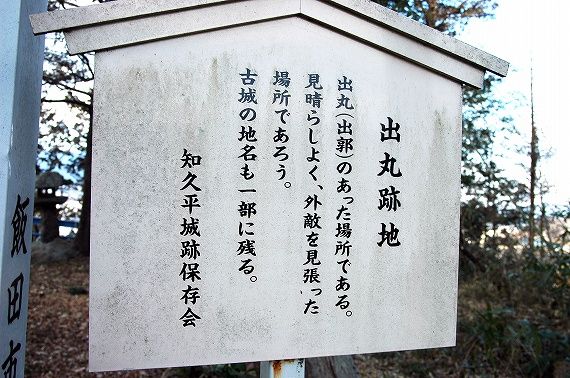 出丸跡地
出丸（出郭）のあった場所である。
見晴らしよく、外敵を見張った
場所であろう。
古城の地名も一部に残る。
知久平城跡保存会
飯田市